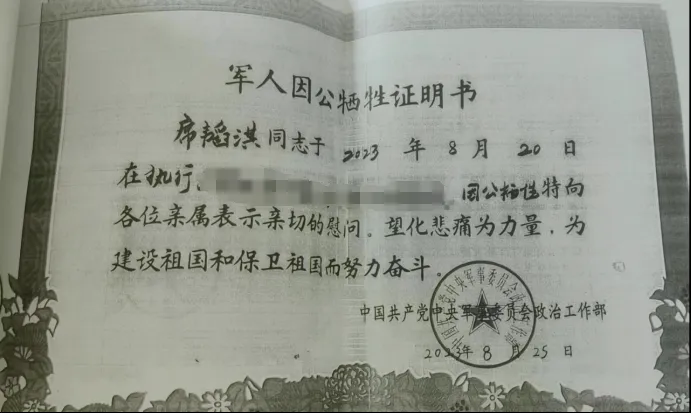 军人因公牺牲证明书
席韬淇同志于 2023 年 8 月 20 日
在执行、因公牺牲特向
各位亲属表示亲切的慰问。望化悲痛为力量，为
建设祖国和保卫祖国而努力奋斗。
中国共产党中央军事委员会政治工作部
2023年 8 月 25 日